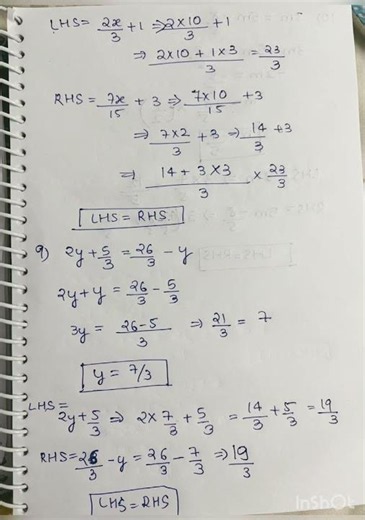 LHS = 2x/3 + 1 ⇒ 2×10/3 + 1
⇒ (2×10 + 1×3)/3 = 23/3
RHS = 7x/15 + 3 ⇒ 7×10/15 + 3
⇒ 7×2/3 + 3 ⇒ 14/3 + 3
⇒ (14 + 3×3)/3 × 23/3
LHS = RHS.
9) 2y + 5/3 = 26/3 - y
2y + y = 26/3 - 5/3
3y = (26-5)/3 ⇒ 21/3 = 7
y = 7/3
LHS =
2y + 5/3 ⇒ 2× 7/3 + 5/3 = 14/3 + 5/3 = 19/3
RHS = 26/3 - y = 26/3 - 7/3 ⇒ 19/3
LHS = RHS
InShOt